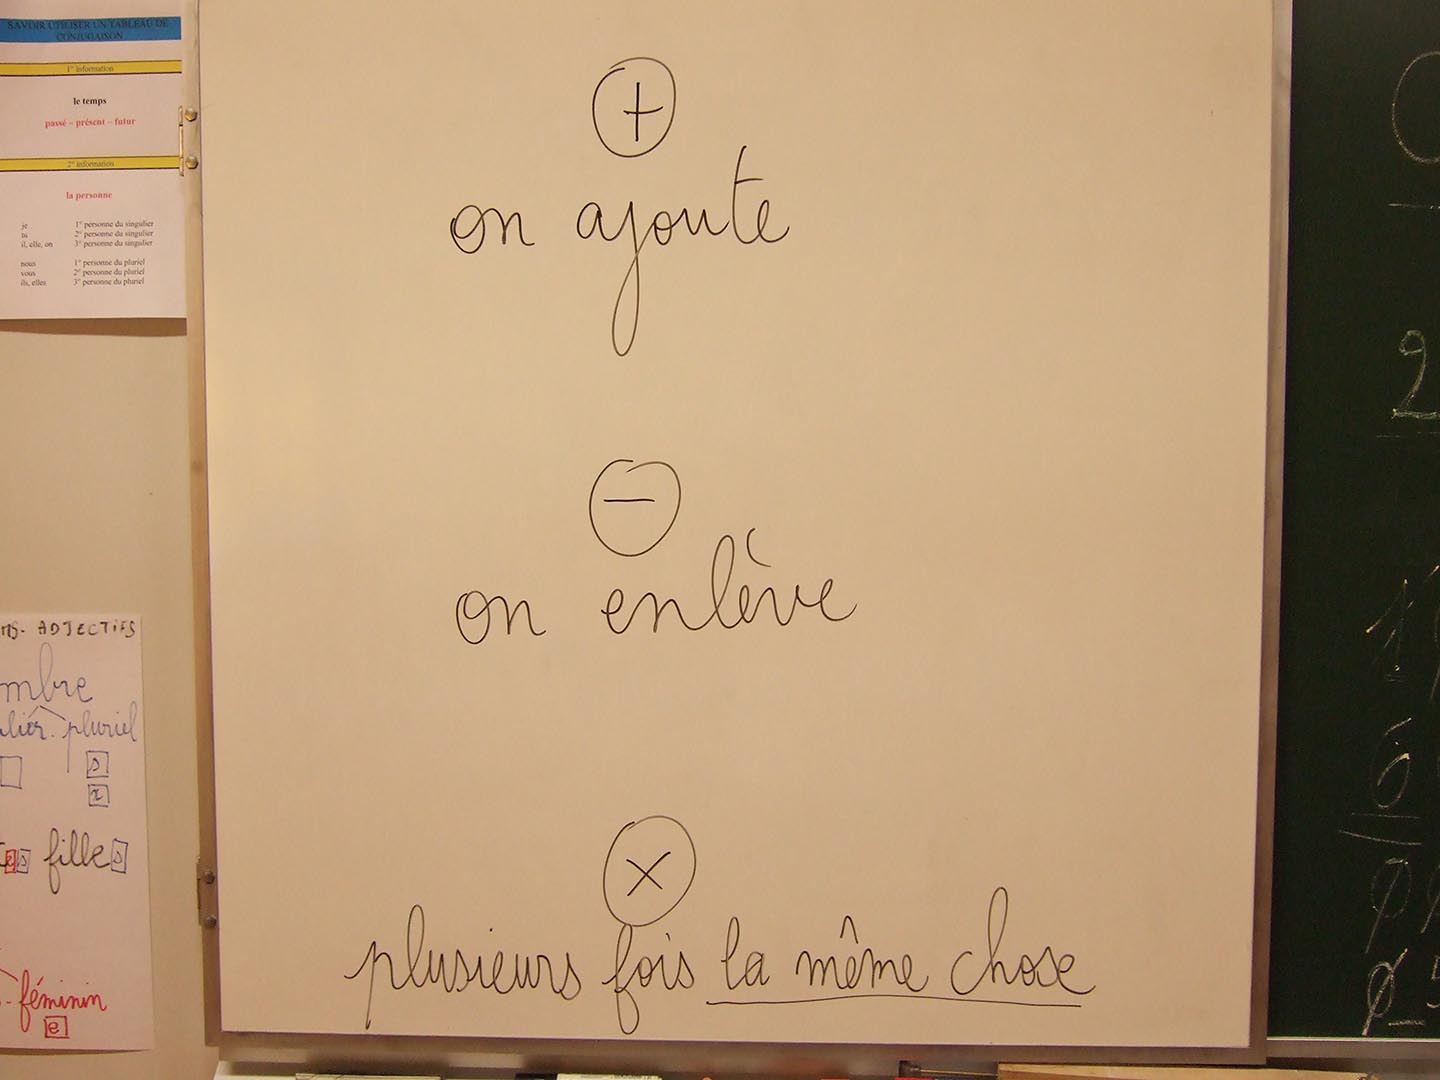 SAVOIR UTILISER UN TABLEAU DE
CONJUGAISON
1° information
le temps
passé – présent – futur
2° information
la personne
je 1° personne du singulier
tu 2° personne du singulier
il, elle, on 3° personne du singulier
nous 1° personne du pluriel
vous 2° personne du pluriel
ils, elles 3° personne du pluriel
+
on ajoute
−
on enlève
×
plusieurs fois la même chose
ADJECTIFS
pluriel
s
x
filles
féminin
e
2